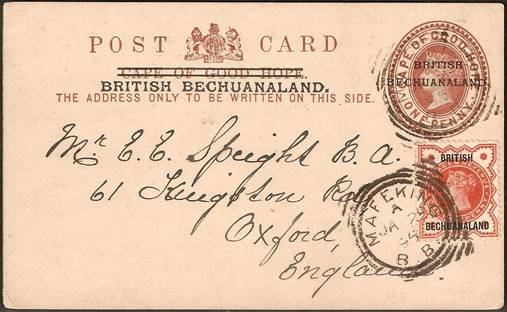 POST CARD
CAPE OF GOOD HOPE.
BRITISH BECHUANALAND.
THE ADDRESS ONLY TO BE WRITTEN ON THIS SIDE.
CAPE OF GOOD HOPE
BRITISH
BECHUANALAND
ONE PENNY
Mr E. E. Speight B.A.
61 Kingston Rd
Oxford,
England
BRITISH
BECHUANALAND
MAFEKING
A
JA 28
94
B.B.